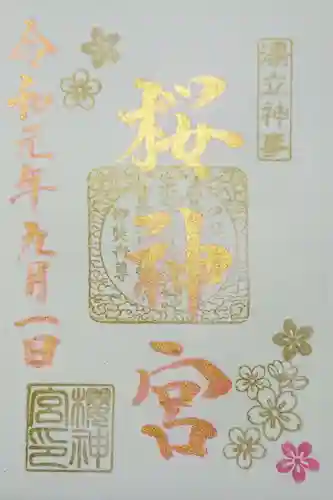 湯立神事
桜神宮
令和元年九月一日
櫻神
宮印